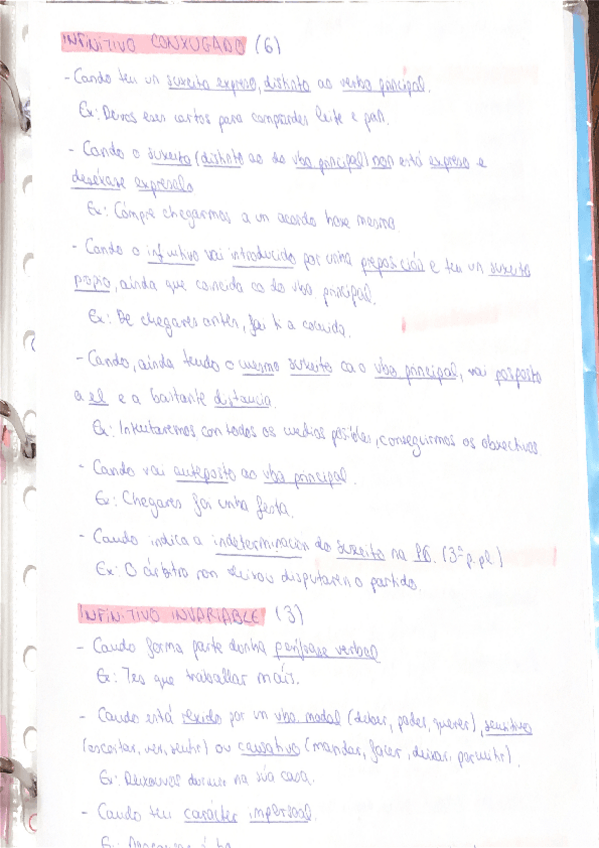 INFINITIVO CONXUGADO (6)
- Cando ten un suxeito expreso, distinto ao verbo principal.
Ex: Deivos eses cartos para comprardes leite e pan.
- Cando o suxeito (distinto ao do vbo principal) non está expreso e
deséxase expresalo
Ex: Cómpre chegarmos a un acordo hoxe mesmo
- Cando o infinitivo vai introducido por unha preposición e ten un suxeito
propio, ainda que coincida co do vbo principal.
Ex: De chegares antes, fai ti a comida.
- Cando, ainda tendo o mesmo suxeito cao vbo principal, vai posposto
a el e a bastante distancia.
Ex: Intentaremos con todos os medios posibles, conseguirmos os obxectivos
- Cando vai anteposto ao vbo principal.
Ex: Chegares foi unha festa.
- Cando indica a indeterminación do suxeito na P6. (3ª p. pl.)
Ex: O árbitro non deixou disputaren o partido.
INFINITIVO INVARIABLE (3)
- Cando forma parte dunha perífrase verbal
Ex: Tes que traballar máis.
- Cando está rexido por un vbo modal (deber, poder, querer), sensitivo
(escoitar, ver, sentir) ou causativo (mandar, facer, deixar, permitir).
Ex: Deixouvos durmir na súa casa.
- Cando ten carácter impersoal.
Ex: